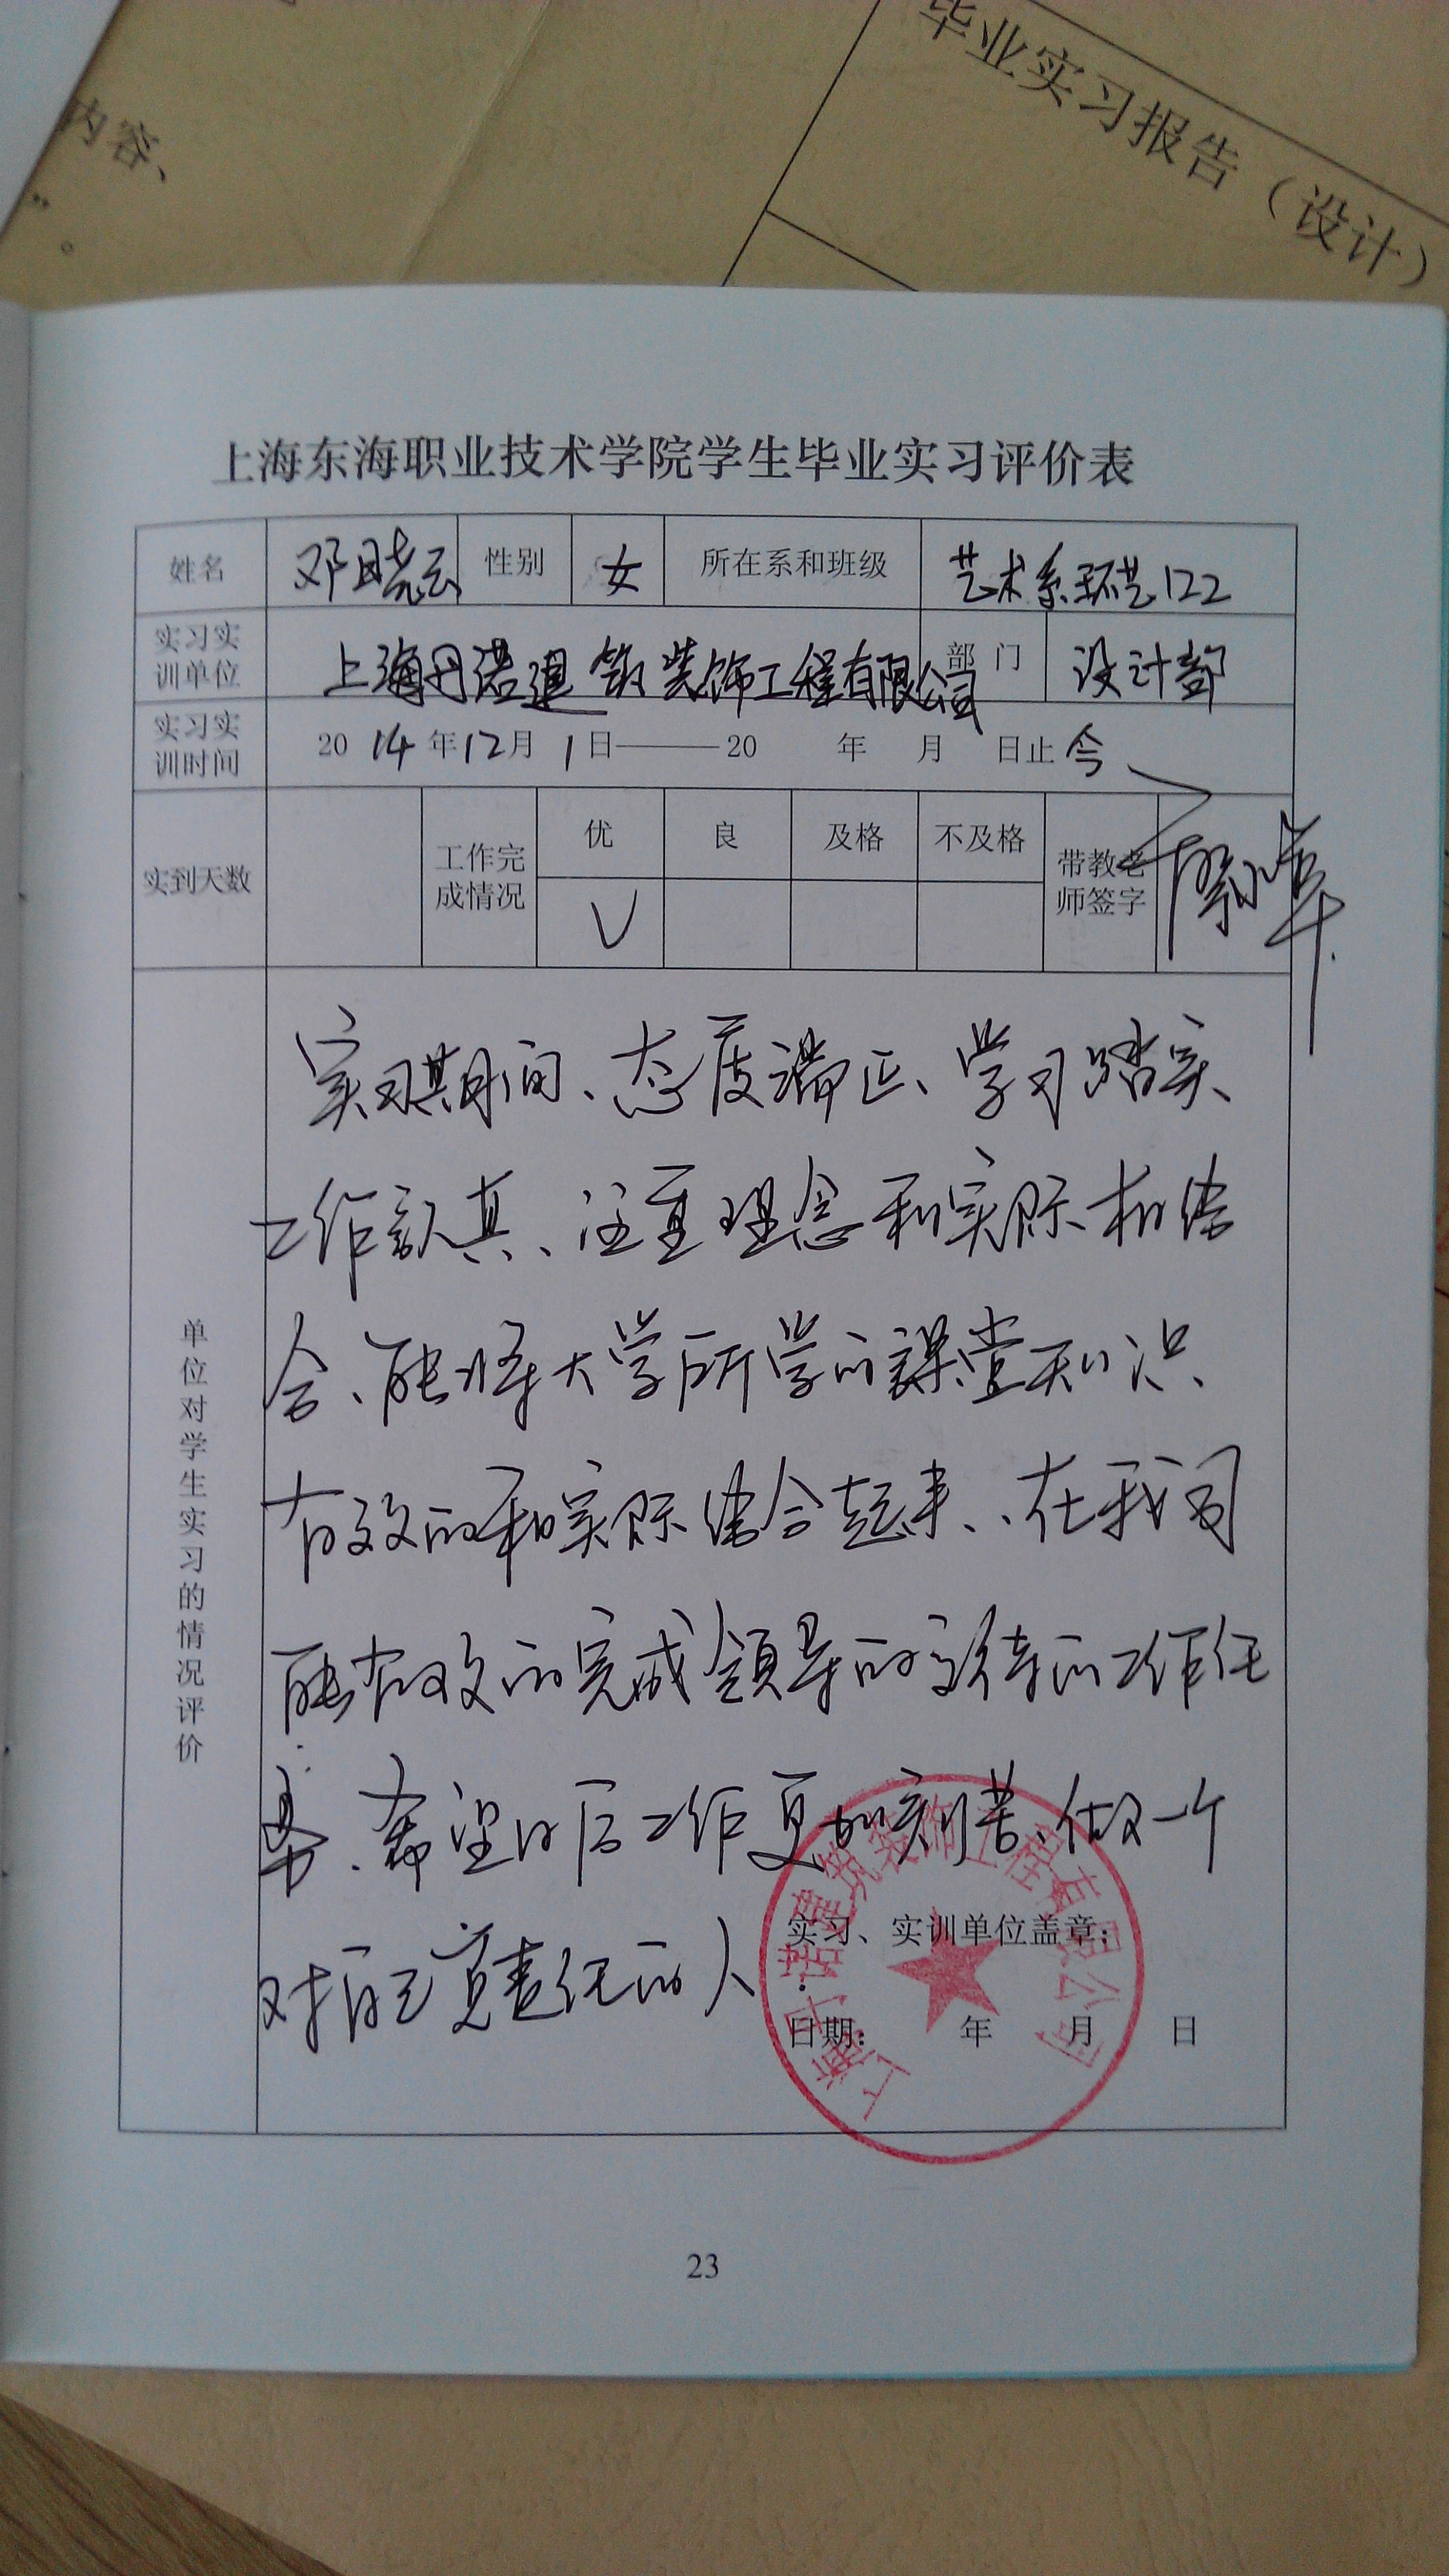 毕业实习报告（设计）
内容、
”。
上海东海职业技术学院学生毕业实习评价表
姓名 邓晓云 性别 女 所在系和班级 艺术系环艺122
实习实训单位 上海丹诺建筑装饰工程有限公司 部 门 设计部
实习实训时间 2014年12月1日———20 年 月 日止 今
实到天数 工作完成情况 优 良 及格 不及格 带教老师签字
√
单位对学生实习的情况评价
实习期间、态度端正、学习踏实、
工作认真、注重理念和实际相结
合、能将大学所学的课堂知识、
有效的和实际结合起来、在我司
能有效的完成领导的交待的工作任
务、希望日后工作更加刻苦、做一个
对自己负责任的人.
实习、实训单位盖章：
日期： 年 月 日
上海丹诺建筑装饰工程有限公司
23